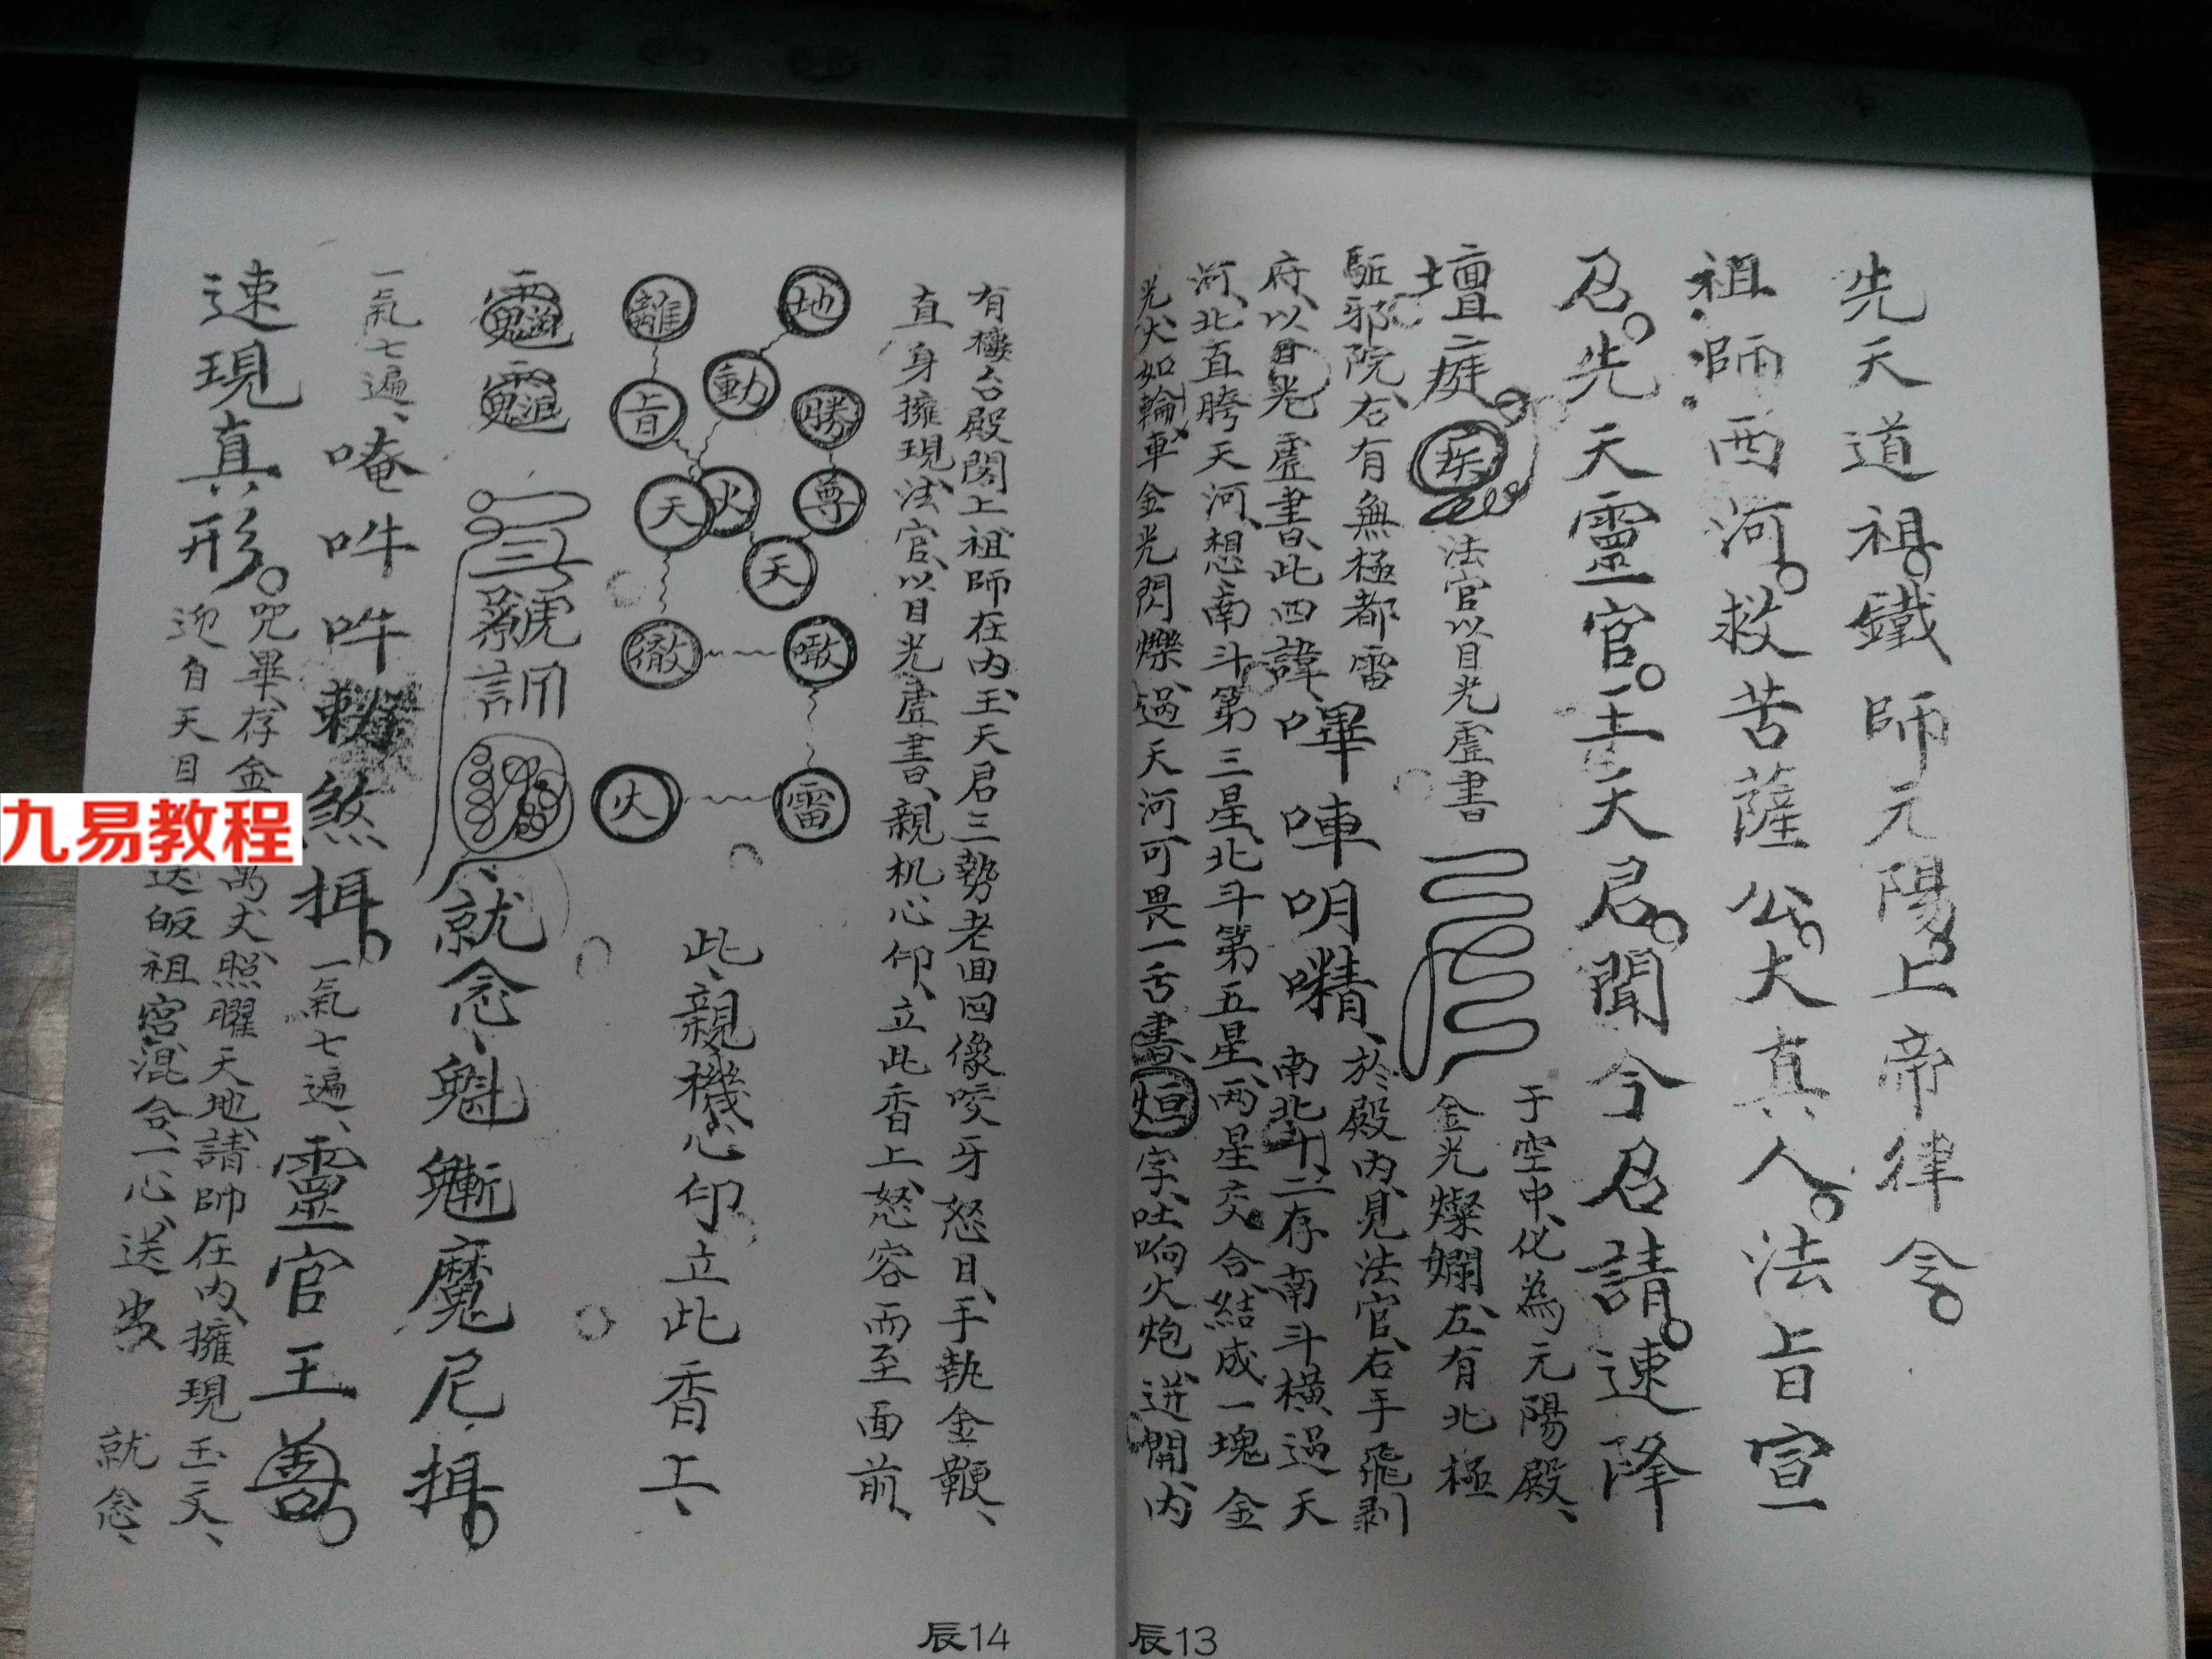 先天道祖鐵師元陽上帝律令
祖師西河救苦薩公大真人法旨宣
召先天靈官王天君聞今召請速降
壇庭
疾
法官以目光虛書
于空中化為元陽殿
金光燦爛左有北極
駈邪院右有無極都雷
於殿內見法官右手飛剥
府以目光虛書此四諱嗶㖠明㗌南北十二存南斗橫過天
河北直胯天河想南斗第三星北斗第五星兩星交合結成一塊金
光大如輪車金光閃爍過天河可畏一舌書烜字吐响火炮迸開內
辰13
有樓台殿閣上祖師在內王天君三勢老面回像咬牙怒目手執金鞭
直身擁現法官以目光虛書親机心印立此香上怒容而至面前
地
動
勝
尊
火
天
噉
雷
離
旨
天
徹
火
此親機心印立此香上
就念魁魙魔尼揖
一氣七遍唵吽吽
煞揖一氣七遍靈官王善
速現真形
咒畢存金
萬丈照曜天地請帥在內擁現玉文
迎自天目
送皈祖宮混合一心送
就念
辰14
九易教程